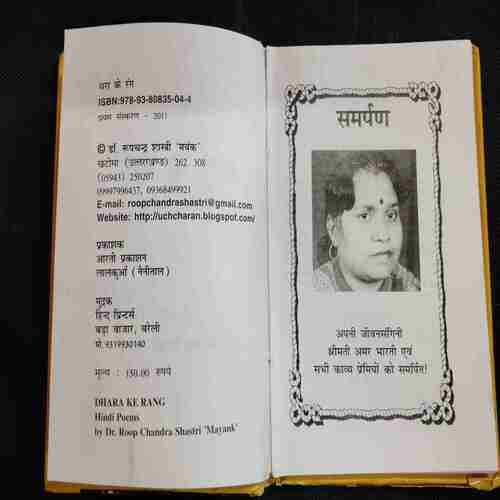 धरा के रंग
ISBN:978-93-80835-04-4
प्रथम संस्करण - 2011
© डॉ. रूपचन्द्र शास्त्री 'मयंक'
खटीमा (उत्तराखण्ड) 262 308
(05943) 250207
09997996437, 09368499921
E-mail: roopchandrashastri@gmail.com
Website: http://uchcharan.blogspot.com/
प्रकाशक
आरती प्रकाशन
लालकुआँ (नैनीताल)
मुद्रक
हिन्द प्रिन्टर्स
बड़ा बाजार, बरेली
मो.9319930140
मूल्य : 150.00 रुपये
DHARA KE RANG
Hindi Poems
by Dr. Roop Chandra Shastri 'Mayank'
समर्पण
अपनी जीवनसंगिनी
श्रीमती अमर भारती एवं
सभी काव्य प्रेमियों को समर्पित!